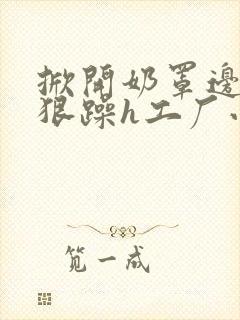 掀開奶罩邊
狠躁h工厂
笕一成